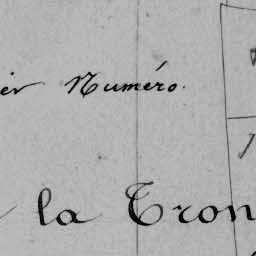 ier Numéro.
la Tron